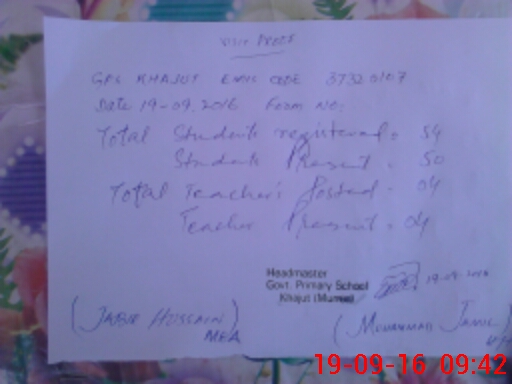 VISIT PROOF
GPS KHAJUT EMIS CODE 37320107
Date 19-09.2016 Form NO:
Total Students registered = 54
Students Present = 50
Total Teacher's Posted = 04
Teacher Present = 04
Headmaster
Govt. Primary School
Khajut (Murree)
19-09-2016
(JABIR HUSSAIN)
MEA
(MOHAMMAD JAMIL
19-09-16 09:42